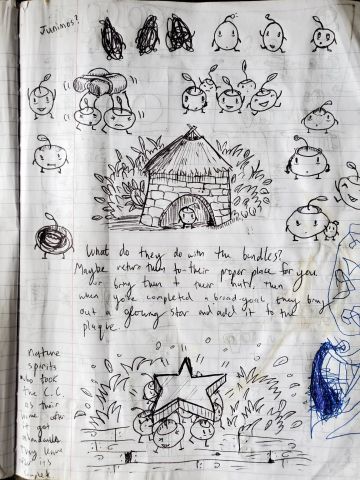 Junimos?
What do they do with the bundles?
Maybe return them to their proper place for you
or bring them to their huts, then
when you've completed a broad goal, they bring
out a glowing star and add it to the
plaque.
Nature
spirits
who took
the C.C.
as their
home after
it got
abandoned
They leave